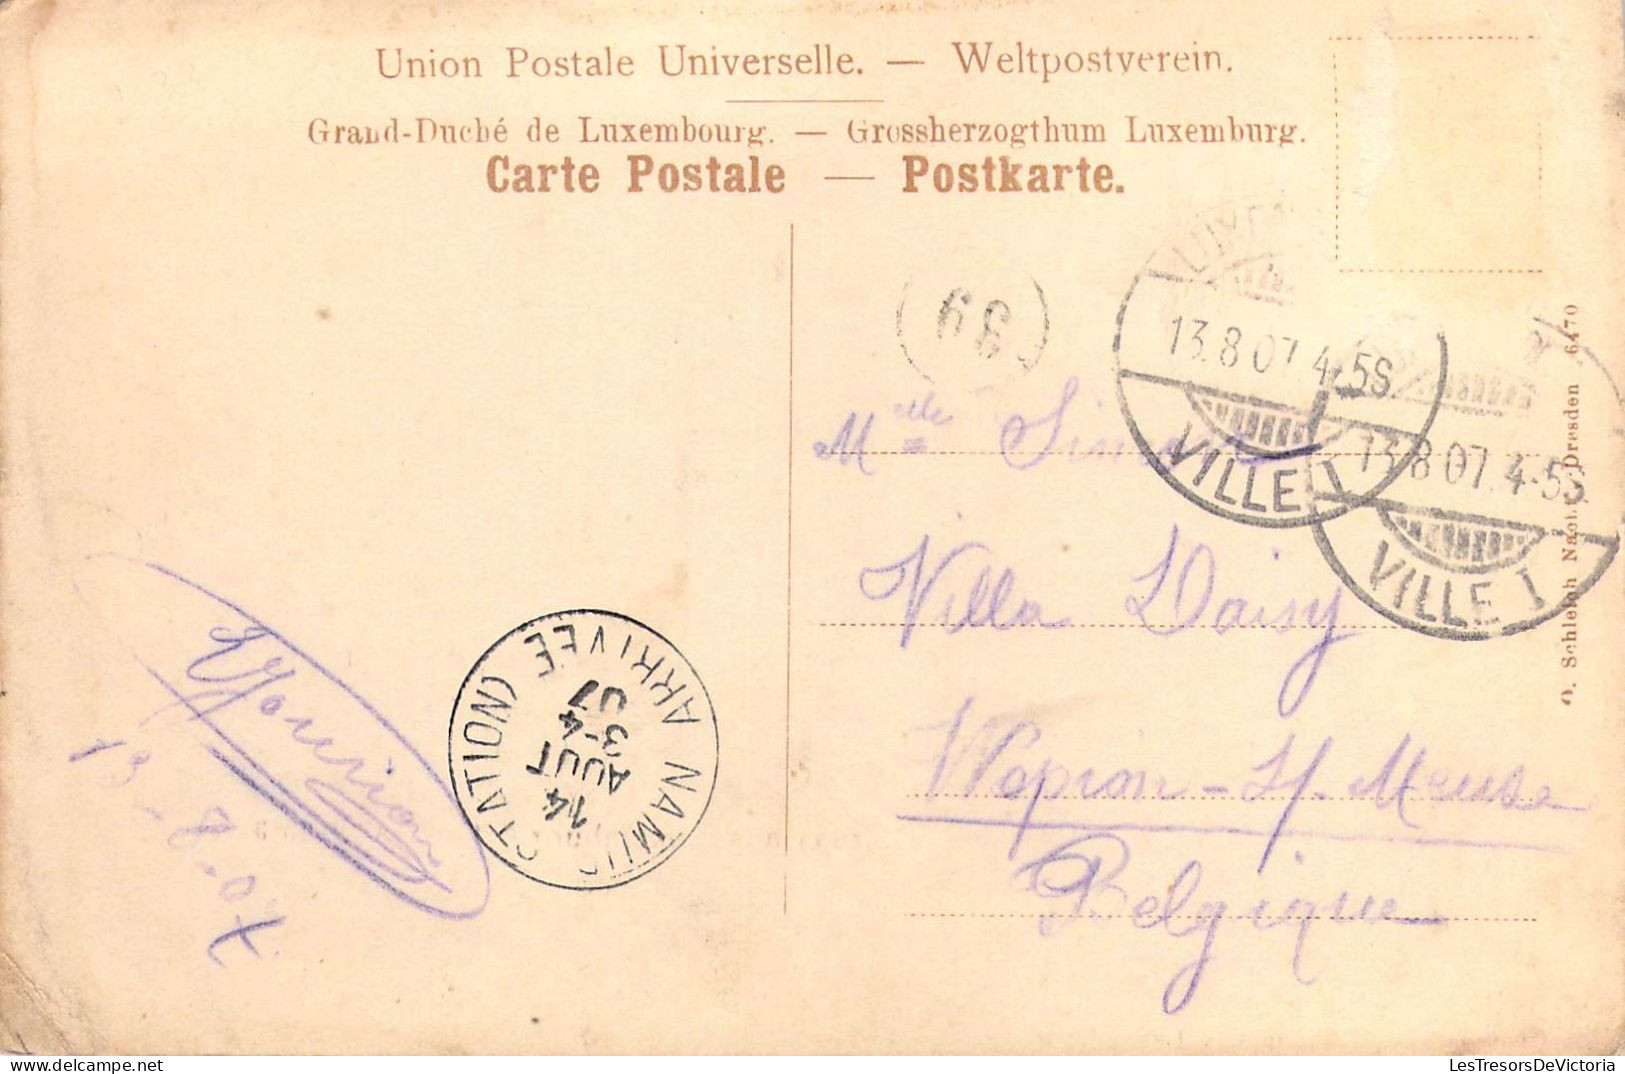 Union Postale Universelle. — Weltpostverein.
Grand-Duché de Luxembourg. — Grossherzogthum Luxemburg.
Carte Postale — Postkarte.
39
LUXEM
13.8.07. 4-5S
VILLE I
13.8.07. 4-5S
VILLE I
Mlle
Villa Daisy
Wépion-s/-Meuse
Belgique
13-8-07
NAMUR (STATION) ARRIVÉE
14
AOUT
3-4
07
O. Schleich Nachf., Dresden 6470
LesTresorsDeVictoria